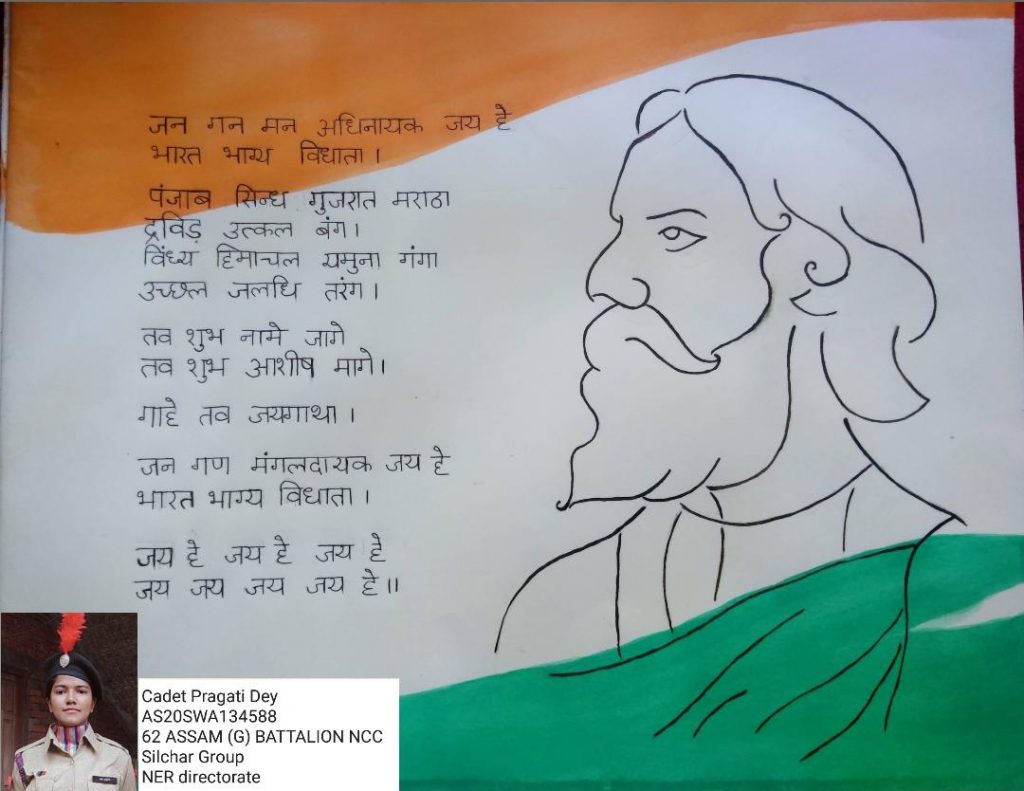 जन गन मन अधिनायक जय हे
भारत भाग्य विधाता।
पंजाब सिन्ध गुजरात मराठा
द्रविड़ उत्कल बंग।
विंध्य हिमाचल यमुना गंगा
उच्छल जलधि तरंग।
तव शुभ नामे जागे
तव शुभ आशीष मागे।
गाहे तव जयगाथा।
जन गण मंगलदायक जय हे
भारत भाग्य विधाता।
जय हे जय हे जय हे
जय जय जय जय हे॥
Cadet Pragati Dey
AS20SWA134588
62 ASSAM (G) BATTALION NCC
Silchar Group
NER directorate